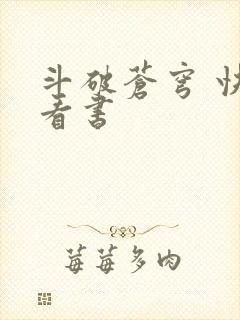 斗破苍穹 快
看书
莓莓多肉